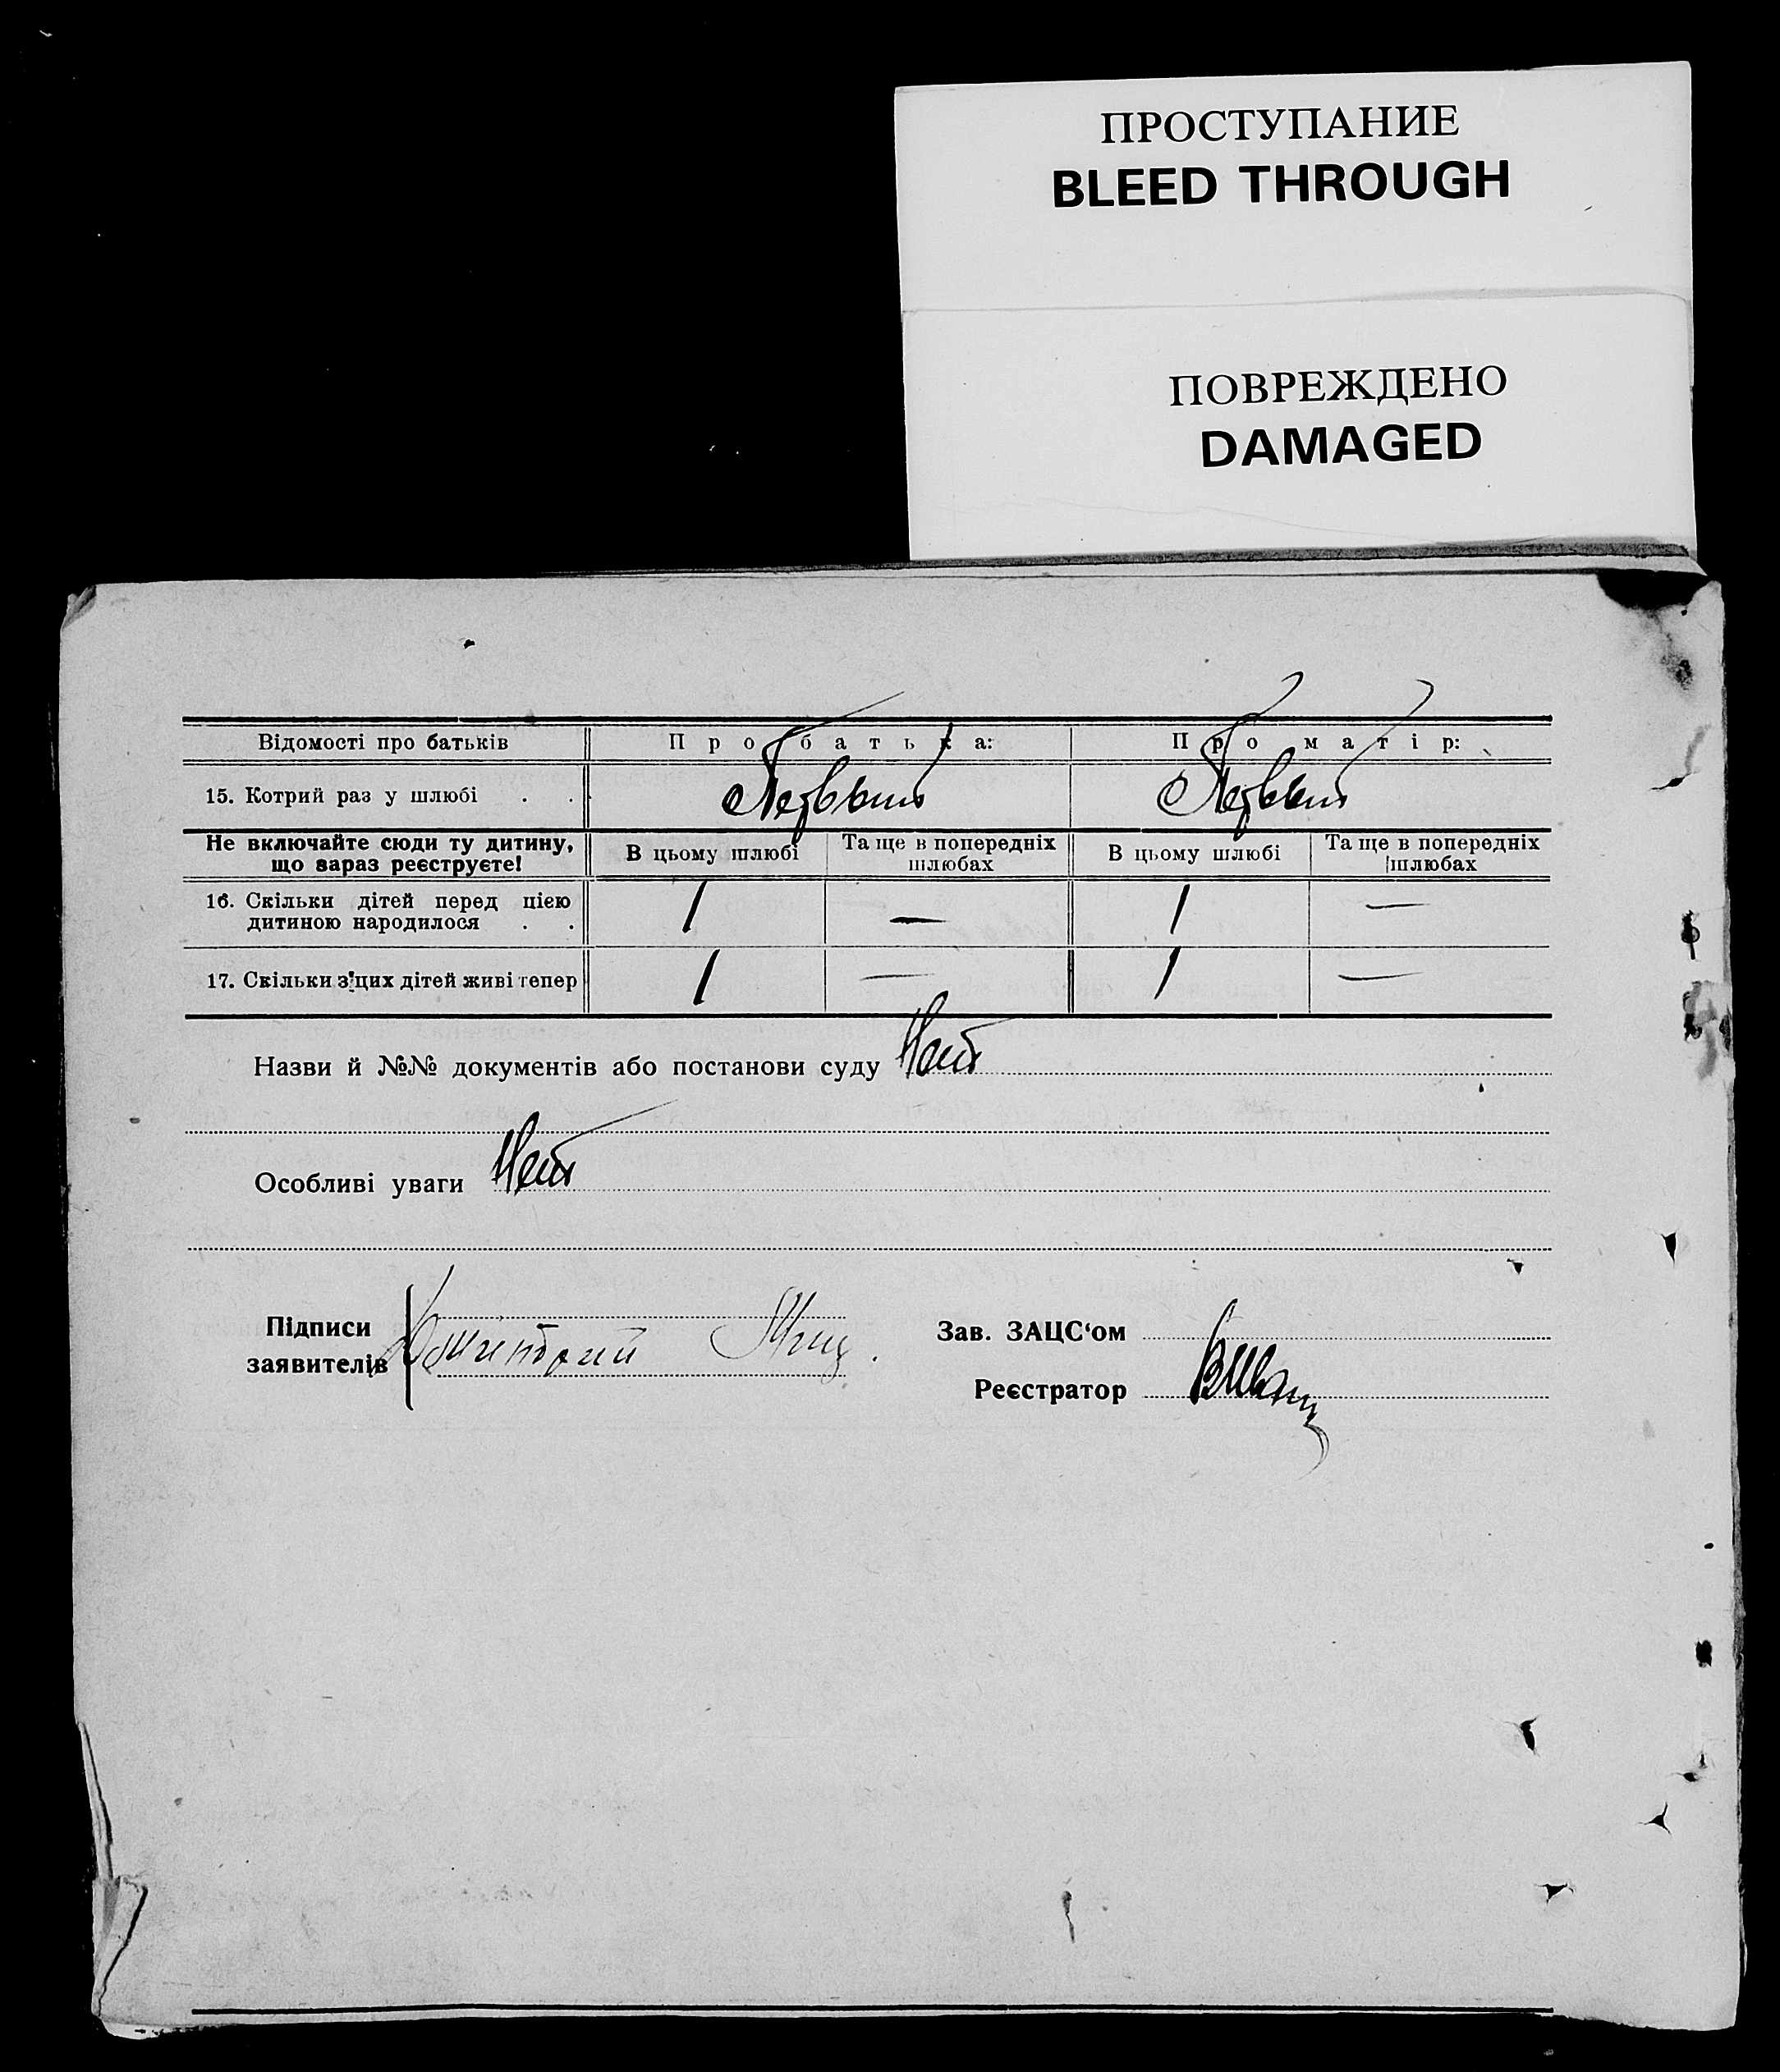 ПРОСТУПАНИЕ
BLEED THROUGH
ПОВРЕЖДЕНО
DAMAGED
Відомості про батьків Про батька: Про матір:
15. Котрий раз у шлюбі . . Первый Первый
Не включайте сюди ту дитину, що зараз реєструєте! В цьому шлюбі Та ще в попередніх шлюбах В цьому шлюбі Та ще в попередніх шлюбах
16. Скільки дітей перед цією дитиною народилося . . 1 — 1 —
17. Скільки з цих дітей живі тепер 1 — 1 —
Назви й №№ документів або постанови суду Нет
Особливі уваги Нет
Підписи заявителів
Зав. ЗАЦС‘ом
Реєстратор